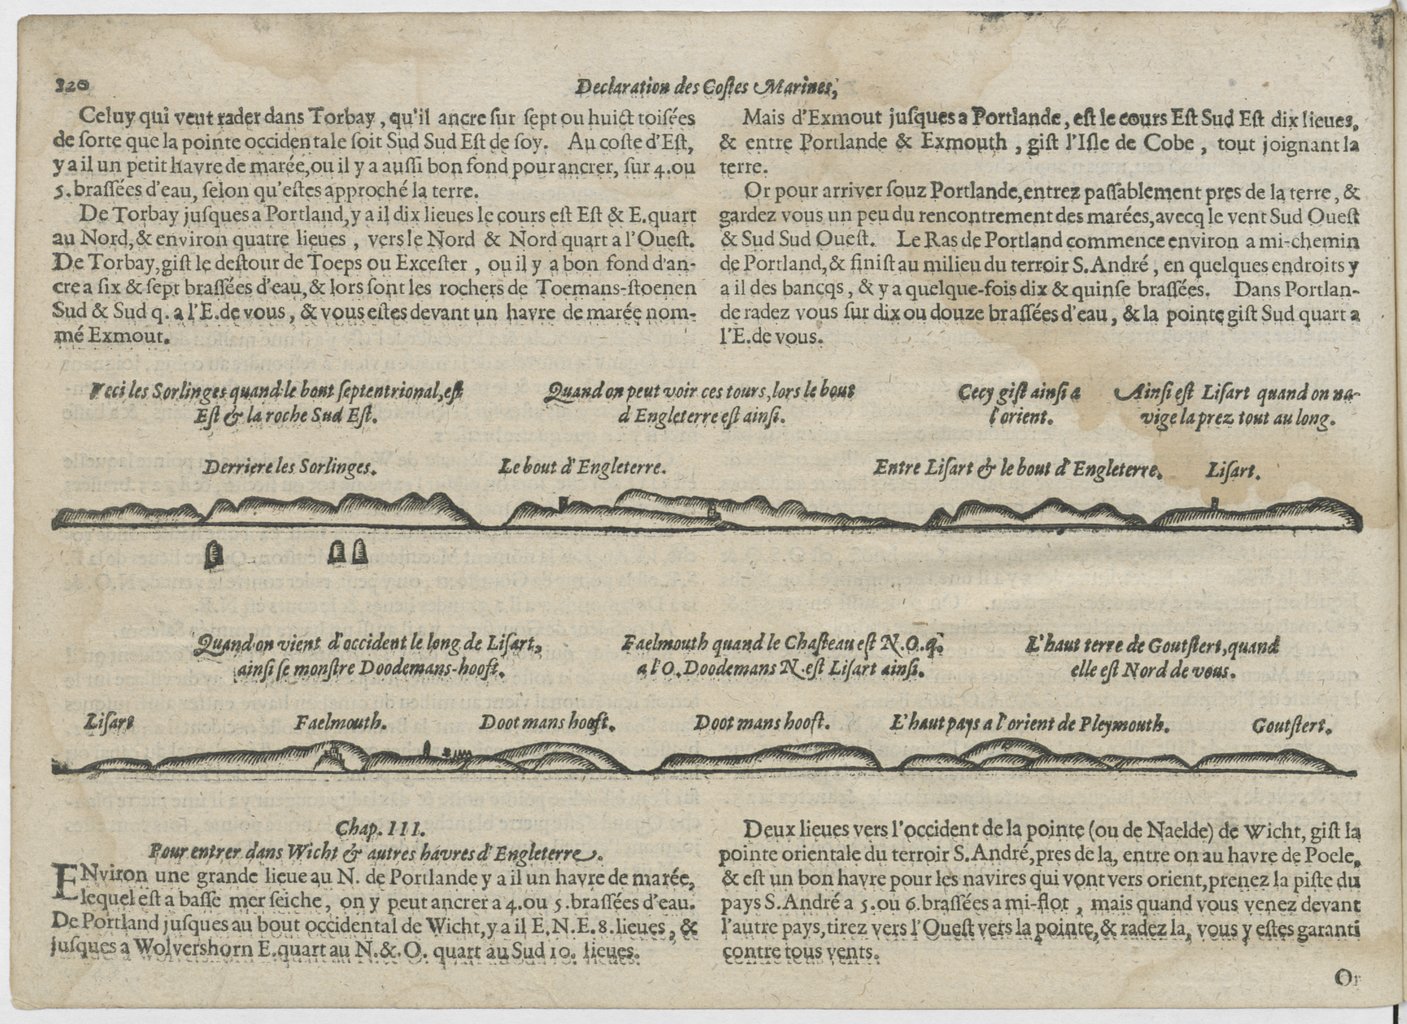 320
Declaration des Costes Marines,
Celuy qui veut rader dans Torbay, qu'il ancre sur sept ou huict toisées
de sorte que la pointe occidentale soit Sud Sud Est de soy. Au coste d'Est,
y a il un petit havre de marée, ou il y a aussi bon fond pour ancrer, sur 4. ou
5. brassées d'eau, selon qu'estes approché la terre.
De Torbay jusques a Portland, y a il dix lieues le cours est Est & E. quart
au Nord, & environ quatre lieues, vers le Nord & Nord quart a l'Ouest.
De Torbay, gist le destour de Toeps ou Excester, ou il y a bon fond d'an-
cre a six & sept brassées d'eau, & lors sont les rochers de Toemans-stoenen
Sud & Sud q. a l'E. de vous, & vous estes devant un havre de marée nom-
mé Exmout.
Mais d'Exmout jusques a Portlande, est le cours Est Sud Est dix lieues,
& entre Portlande & Exmouth, gist l'Isle de Cobe, tout joignant la
terre.
Or pour arriver souz Portlande, entrez passablement pres de la terre, &
gardez vous un peu du rencontrement des marées, avecq le vent Sud Ouest
& Sud Sud Ouest. Le Ras de Portland commence environ a mi-chemin
de Portland, & finist au milieu du terroir S. André, en quelques endroits y
a il des bancqs, & y a quelque-fois dix & quinse brassées. Dans Portlan-
de radez vous sur dix ou douze brassées d'eau, & la pointe gist Sud quart a
l'E. de vous.
Veci les Sorlinges quand le bout septentrional, est
Est & la roche Sud Est.
Quand on peut voir ces tours, lors le bout
d'Engleterre est ainsi.
Cecy gist ainsi a
l'orient.
Ainsi est Lisart quand on na-
vige la prez tout au long.
Derriere les Sorlinges.
Le bout d'Engleterre.
Entre Lisart & le bout d'Engleterre.
Lisart.
Quand on vient d'occident le long de Lisart,
ainsi se monstre Doodemans-hooft.
Faelmouth quand le Chasteau est N.O.q.
a l'O. Doodemans N. est Lisart ainsi.
L'haut terre de Goutstert, quand
elle est Nord de vous.
Lisart
Faelmouth.
Doot mans hooft.
Doot mans hooft.
L'haut pays a l'orient de Pleymouth.
Goutstert.
Chap. III.
Pour entrer dans Wicht & autres havres d'Engleterre.
ENviron une grande lieue au N. de Portlande y a il un havre de marée,
lequel est a basse mer seiche, on y peut ancrer a 4. ou 5. brassées d'eau.
De Portland jusques au bout occidental de Wicht, y a il E. N. E. 8. lieues, &
jusques a Wolvershorn E. quart au N. & O. quart au Sud 10. lieues.
Deux lieues vers l'occident de la pointe (ou de Naelde) de Wicht, gist la
pointe orientale du terroir S. André, pres de la, entre on au havre de Poele,
& est un bon havre pour les navires qui vont vers orient, prenez la piste du
pays S. André a 5. ou 6. brassées a mi-flot, mais quand vous venez devant
l'autre pays, tirez vers l'Ouest vers la pointe, & radez la, vous y estes garanti
contre tous vents.
Or